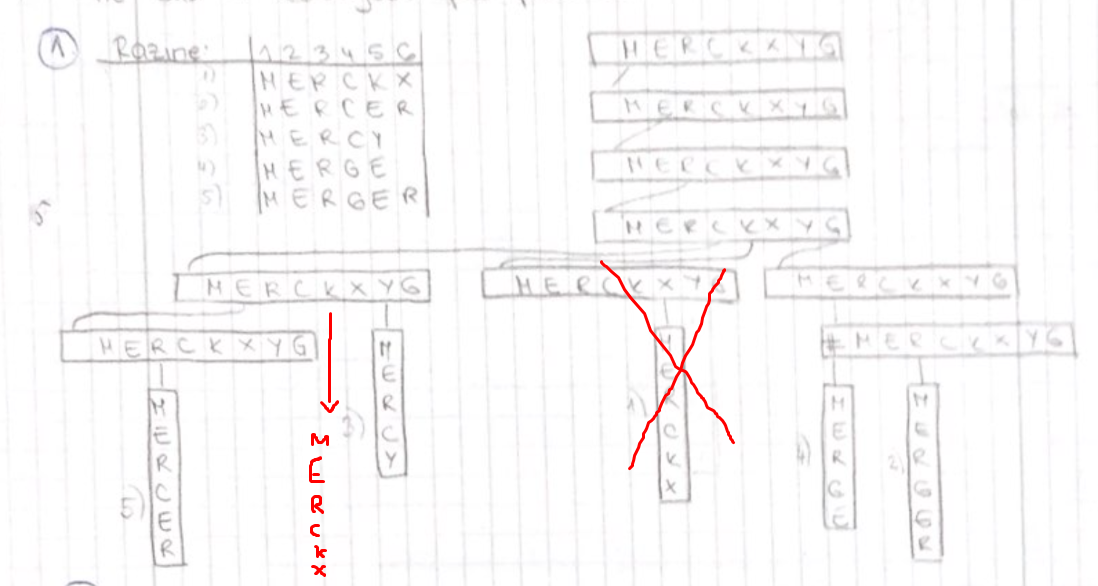 1
Razine: 1 2 3 4 5 6
1) M E R C K X
2) M E R C E R
3) M E R C Y
4) M E R G E
5) M E R G E R
M E R C K X Y G
M E R C K X Y G
M E R C K X Y G
M E R C K X Y G
M E R C K X Y G
M E R C K X Y G
M E R C K X Y G
M E R C K X Y G
# M E R C K X Y G
5) M E R C E R
M E R C K X
3) M E R C Y
1) M E R C K X
4) M E R G E
2) M E R G E R